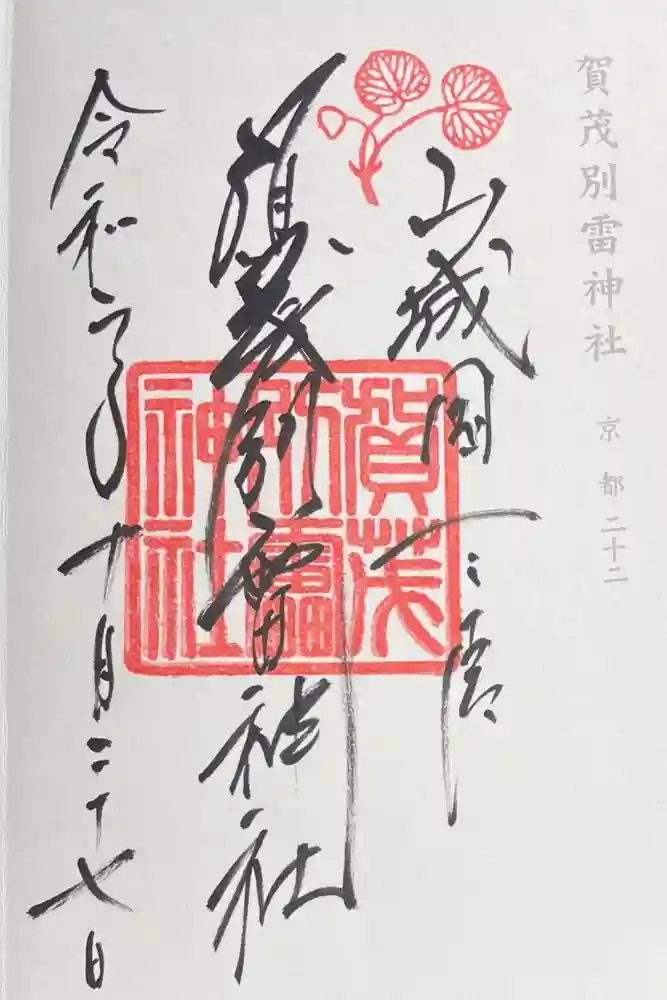 賀茂別雷神社 京都二十二
山城國一之宮
賀茂別雷神社
令和二年十月二十七日
賀茂
別雷
神社